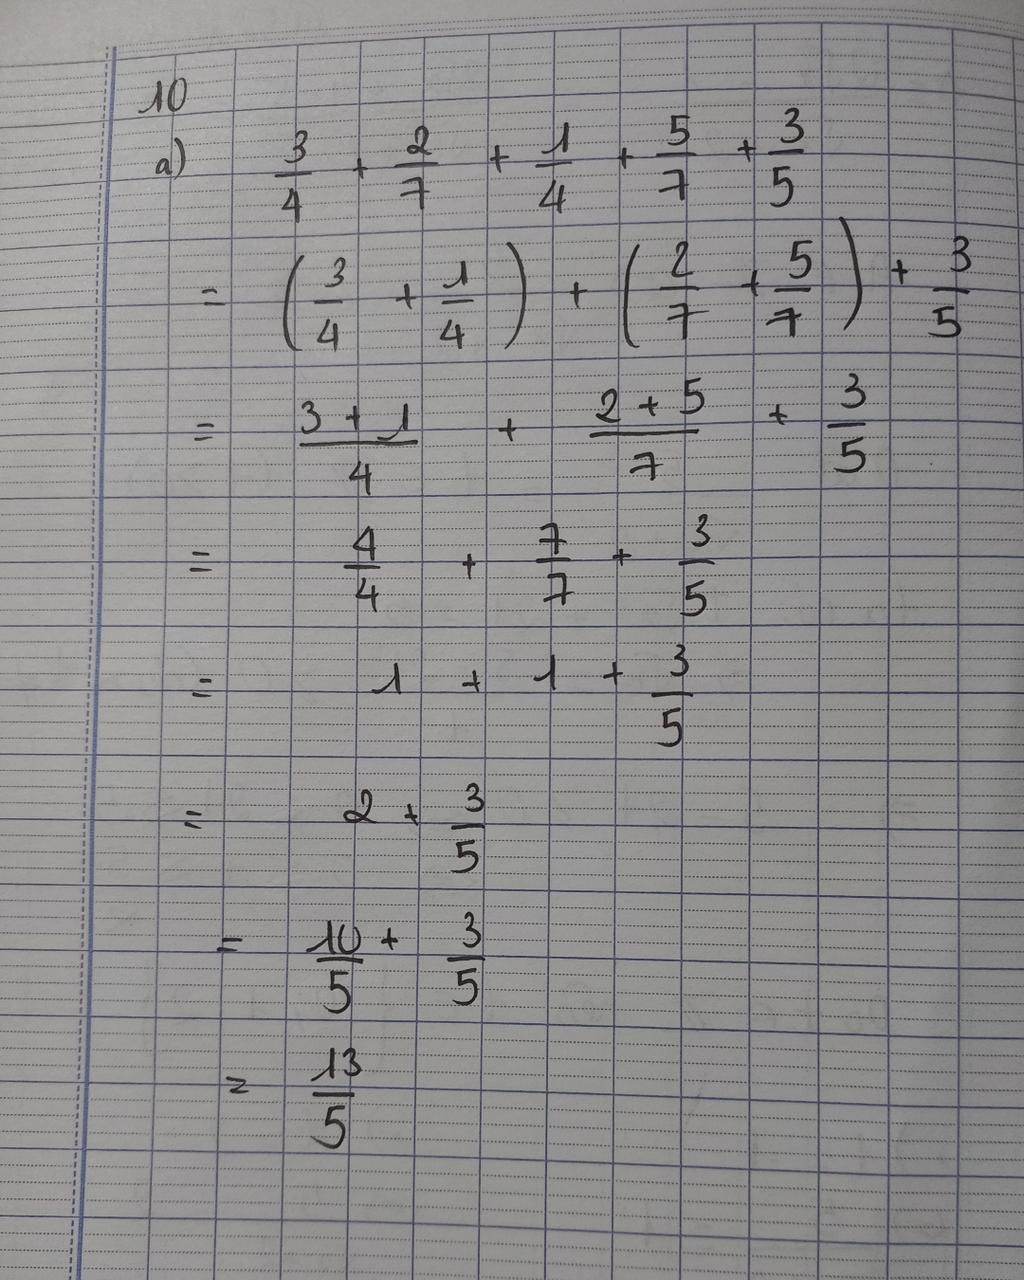 10
a) 3/4 + 2/7 + 1/4 + 5/7 + 3/5
= (3/4 + 1/4) + (2/7 + 5/7) + 3/5
= (3 + 1)/4 + (2 + 5)/7 + 3/5
= 4/4 + 7/7 + 3/5
= 1 + 1 + 3/5
= 2 + 3/5
= 10/5 + 3/5
= 13/5